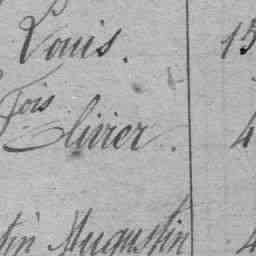 Louis. 15
Fois
Olivier. 4
tin Augustin 4